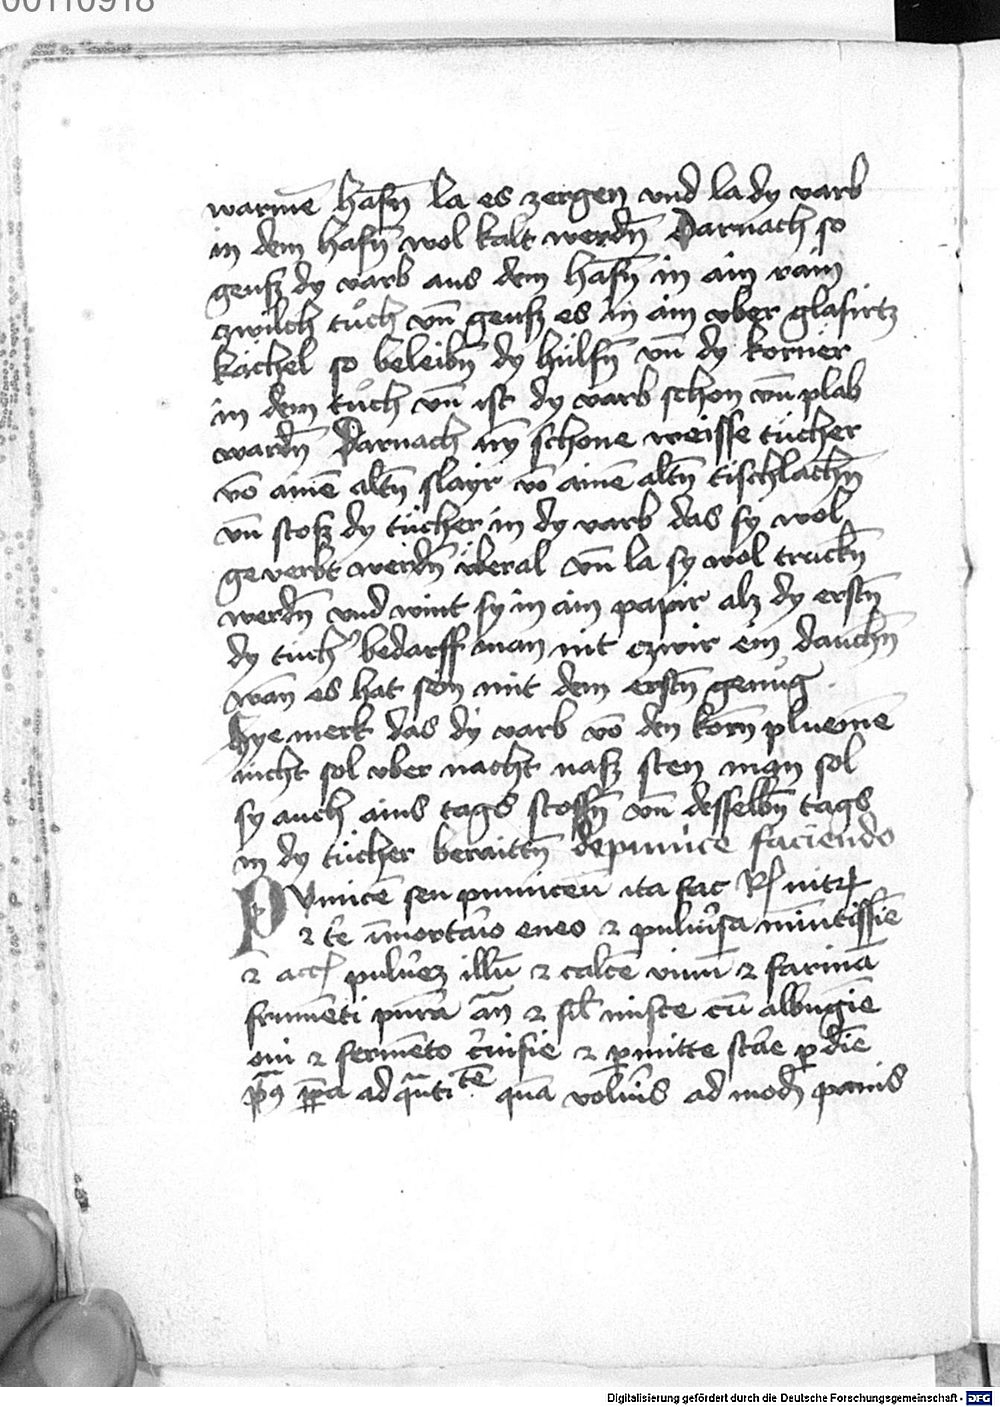 00110918
warmē hafn̄ la es zergen vnd la dy varb
in dem hafn̄ wol kalt werdn̄ Darnach so
geusz dy varb aus dem hafn̄ in ain rain
zwilch tůch vn̄ geusz es in ain vber glasirtz
kächel so beleibn̄ dy hülsn̄ vn̄ dy korner
in dem tůch vn̄ ist dy varb schon vn̄ plab
wardn̄ Darnach nȳ schone weisse tücher
vō ainē altn̄ slayr vō ainē altn̄ tischlachn̄
vn̄ stosz dy tücher in dy varb das sy wol
geverbt werdn̄ v̈beral vn̄ la sy wol truckn̄
werdn̄ vnd wint sy in ain papir alz dy erstn̄
dy tuch' bedarff man nit zwir ein dauchn̄
wan es hat sein mit dem erstn̄ genůg
Hye merk das dy varb vō den korn plueme
nicht sol vber nacht nasz sten man sol
sy auch ains tags stossn̄ vn̄ desselbn̄ tags
in dy tücher beraittn̄ de punice faciendo
Punicē seu puniceū ita fac Rx nitrꝫ
⁊ t'e ī mortario eneo ⁊ pulu'isa minutissīe
⁊ acc pulu'ez illū ⁊ calcē viuū ⁊ farinā
frumēti purā an̄ ⁊ sil' misce cū albugīe
oui ⁊ fermēto c'uisie ⁊ ꝑmitte stare ꝑ diē
ad quātitatē quā volu'is ad modū panis
Digitalisierung gefördert durch die Deutsche Forschungsgemeinschaft - DFG